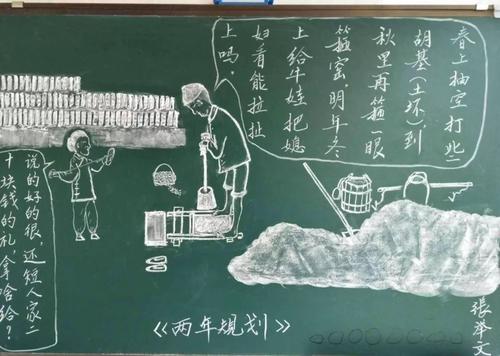 春上抽空打些
胡基(土坯)到
秋里再箍一眼
箍窑明年冬
上给牛娃把媳
妇看能拉扯
上吗。
说的好的很,还短人家二
十块钱的礼,拿啥给?
《两年规划》
張举文